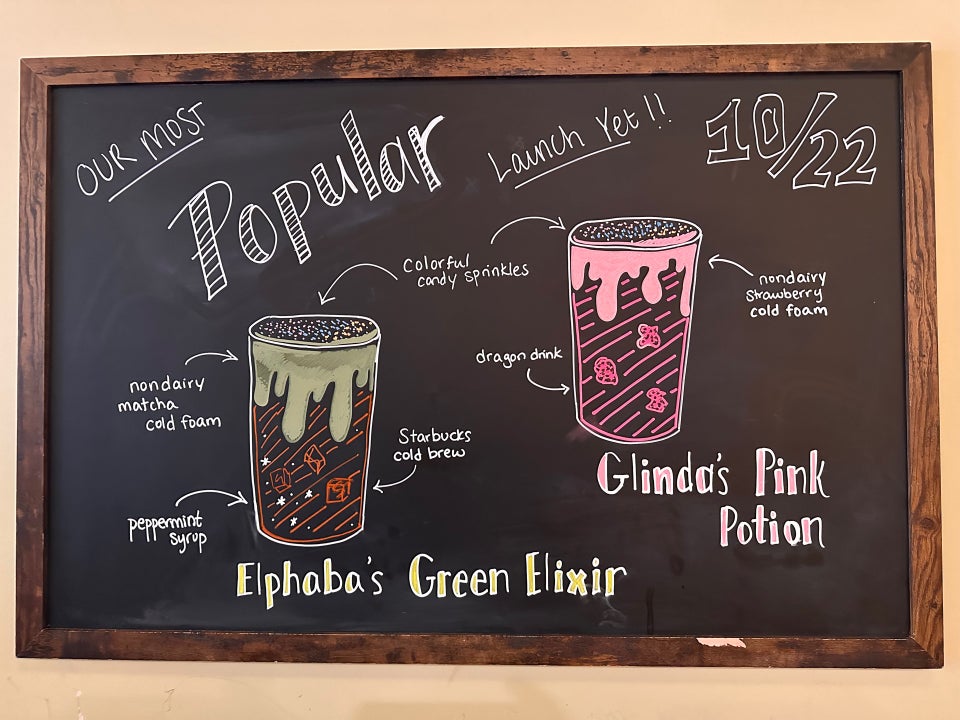 OUR MOST
Popular
Launch Yet!!
10/22
Colorful
candy sprinkles
nondairy
strawberry
cold foam
dragon drink
nondairy
matcha
cold foam
Starbucks
cold brew
peppermint
syrup
Glinda's Pink
Potion
Elphaba's Green Elixir